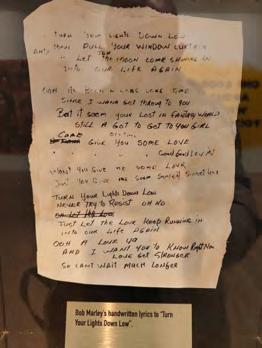 TURN YOUR LIGHTS DOWN LOW
AND THEN PULL YOUR WINDOW CURTAIN
LET THE MOON COME SHINING IN
INTO OUR LIFE AGAIN
OOH ITS BEEN A LONG LONG TIME
SINCE I WANA GOT THROUGH TO YOU
But it SEEM YOUR LOST IN FANTASY WORLD
STILL A GOT TO GET TO YOU GIRL
COME
GIVE YOU SOME LOVE
" " " " Good Good Love
WONT YOU GIVE ME SOME LOVE
Just YOU GIVE ME SOME
TURN YOUR LIGHTS DOWN LOW
NEVER TRY TO RESIST OH NO
JUST LET THE LOVE KEEP RUNNING IN
INTO OUR LIFE AGAIN
OOH A LOVE YA
AND I WANT YOU TO KNOW RIGHT NOW
LOVE GOT STRONGER
SO CANT WAIT MUCH LONGER
Bob Marley's handwritten lyrics to "Turn
Your Lights Down Low".